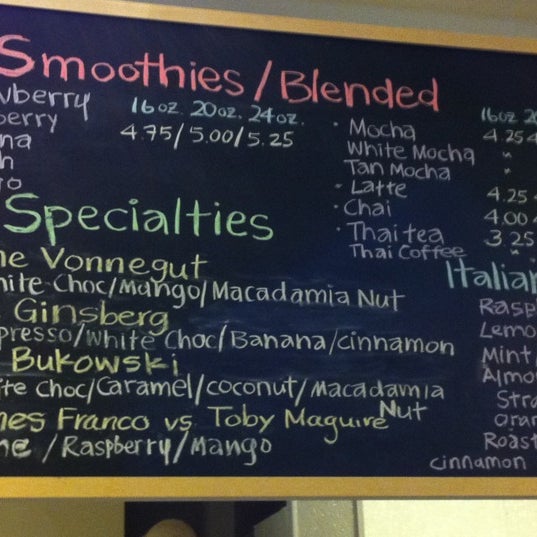 Smoothies/Blended
wberry
berry
na
h
ro
16oz. 20oz. 24oz.
4.75/5.00/5.25
Specialties
he Vonnegut
hite Choc/Mango/Macadamia Nut
Ginsberg
presso/White Choc/Banana/cinnamon
Bukowski
ite Choc/Caramel/coconut/Macadamia Nut
mes Franco vs. Toby Maguire
/Raspberry/Mango
16oz 20
· Mocha 4.25 4
White Mocha "
Tan Mocha "
· Latte 4.25
· Chai 4.00
· Thai tea 3.25
Thai Coffee "
Italian
Rasp
Lemo
Mint
Almo
Stra
oran
Roast
cinnamon